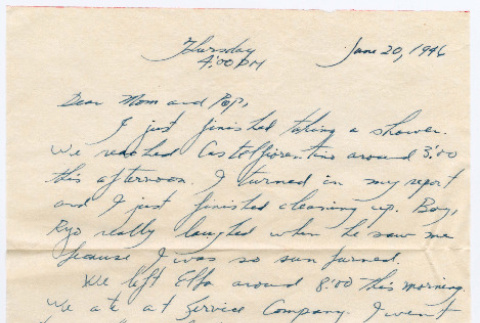 Thursday June 20, 1946
4:00 PM
Dear Mom and Pop,
I just finished taking a shower.
We reached Castelfiorentino around 3:00
this afternoon. I turned in my report
and I just finished cleaning up. Boy,
Ryo really laughed when he saw me
because I was so sun burned.
We left Elba around 8:00 this morning.
We ate at Service Company. I went